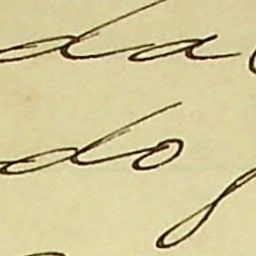 da
do